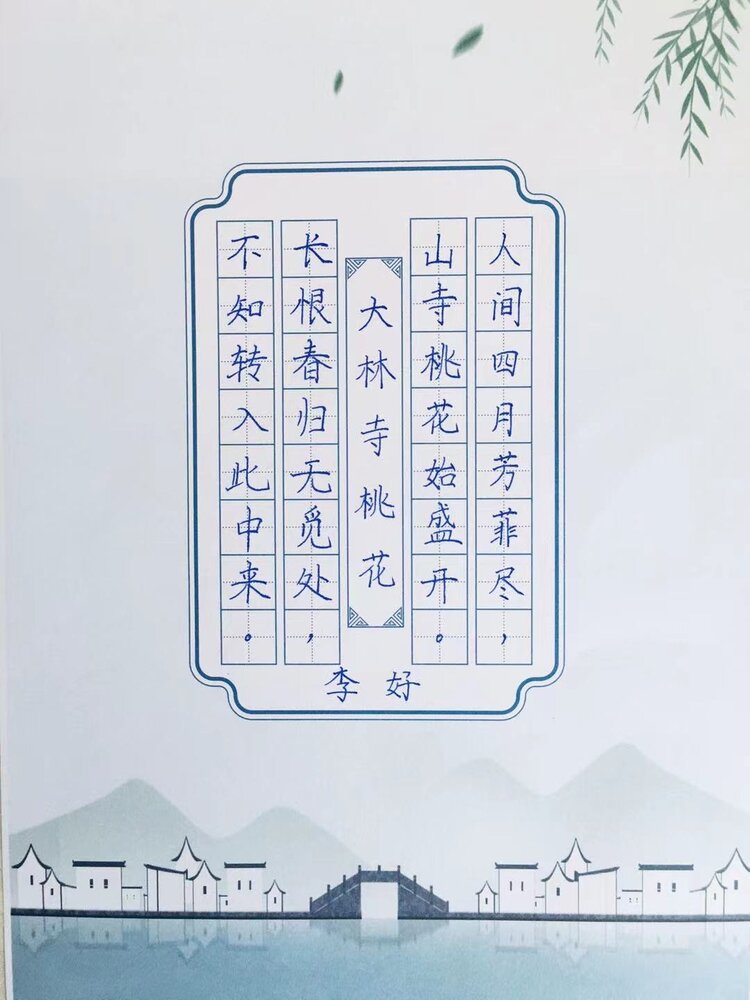 人间四月芳菲尽，
山寺桃花始盛开。
大林寺桃花
长恨春归无觅处，
不知转入此中来。
李好